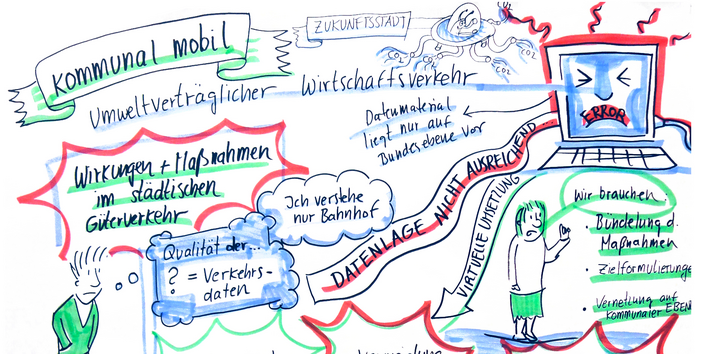 Kommunal mobil
ZUKUNFTSSTADT
CO2
CO2
CO2
CO2
Umweltverträglicher Wirtschaftsverkehr
Datenmaterial
liegt nur auf
Bundesebene vor
ERROR
Wirkungen + Maßnahmen
im städtischen
Güterverkehr
Ich verstehe
nur Bahnhof
Qualität der...
? = Verkehrs-
daten
DATENLAGE NICHT AUSREICHEND...
VIRTUELLE UMSETZUNG
Wir brauchen:
• Bündelung d.
Maßnahmen
• Zielformulierunge
• Vernetzung auf
kommunaler EBEN